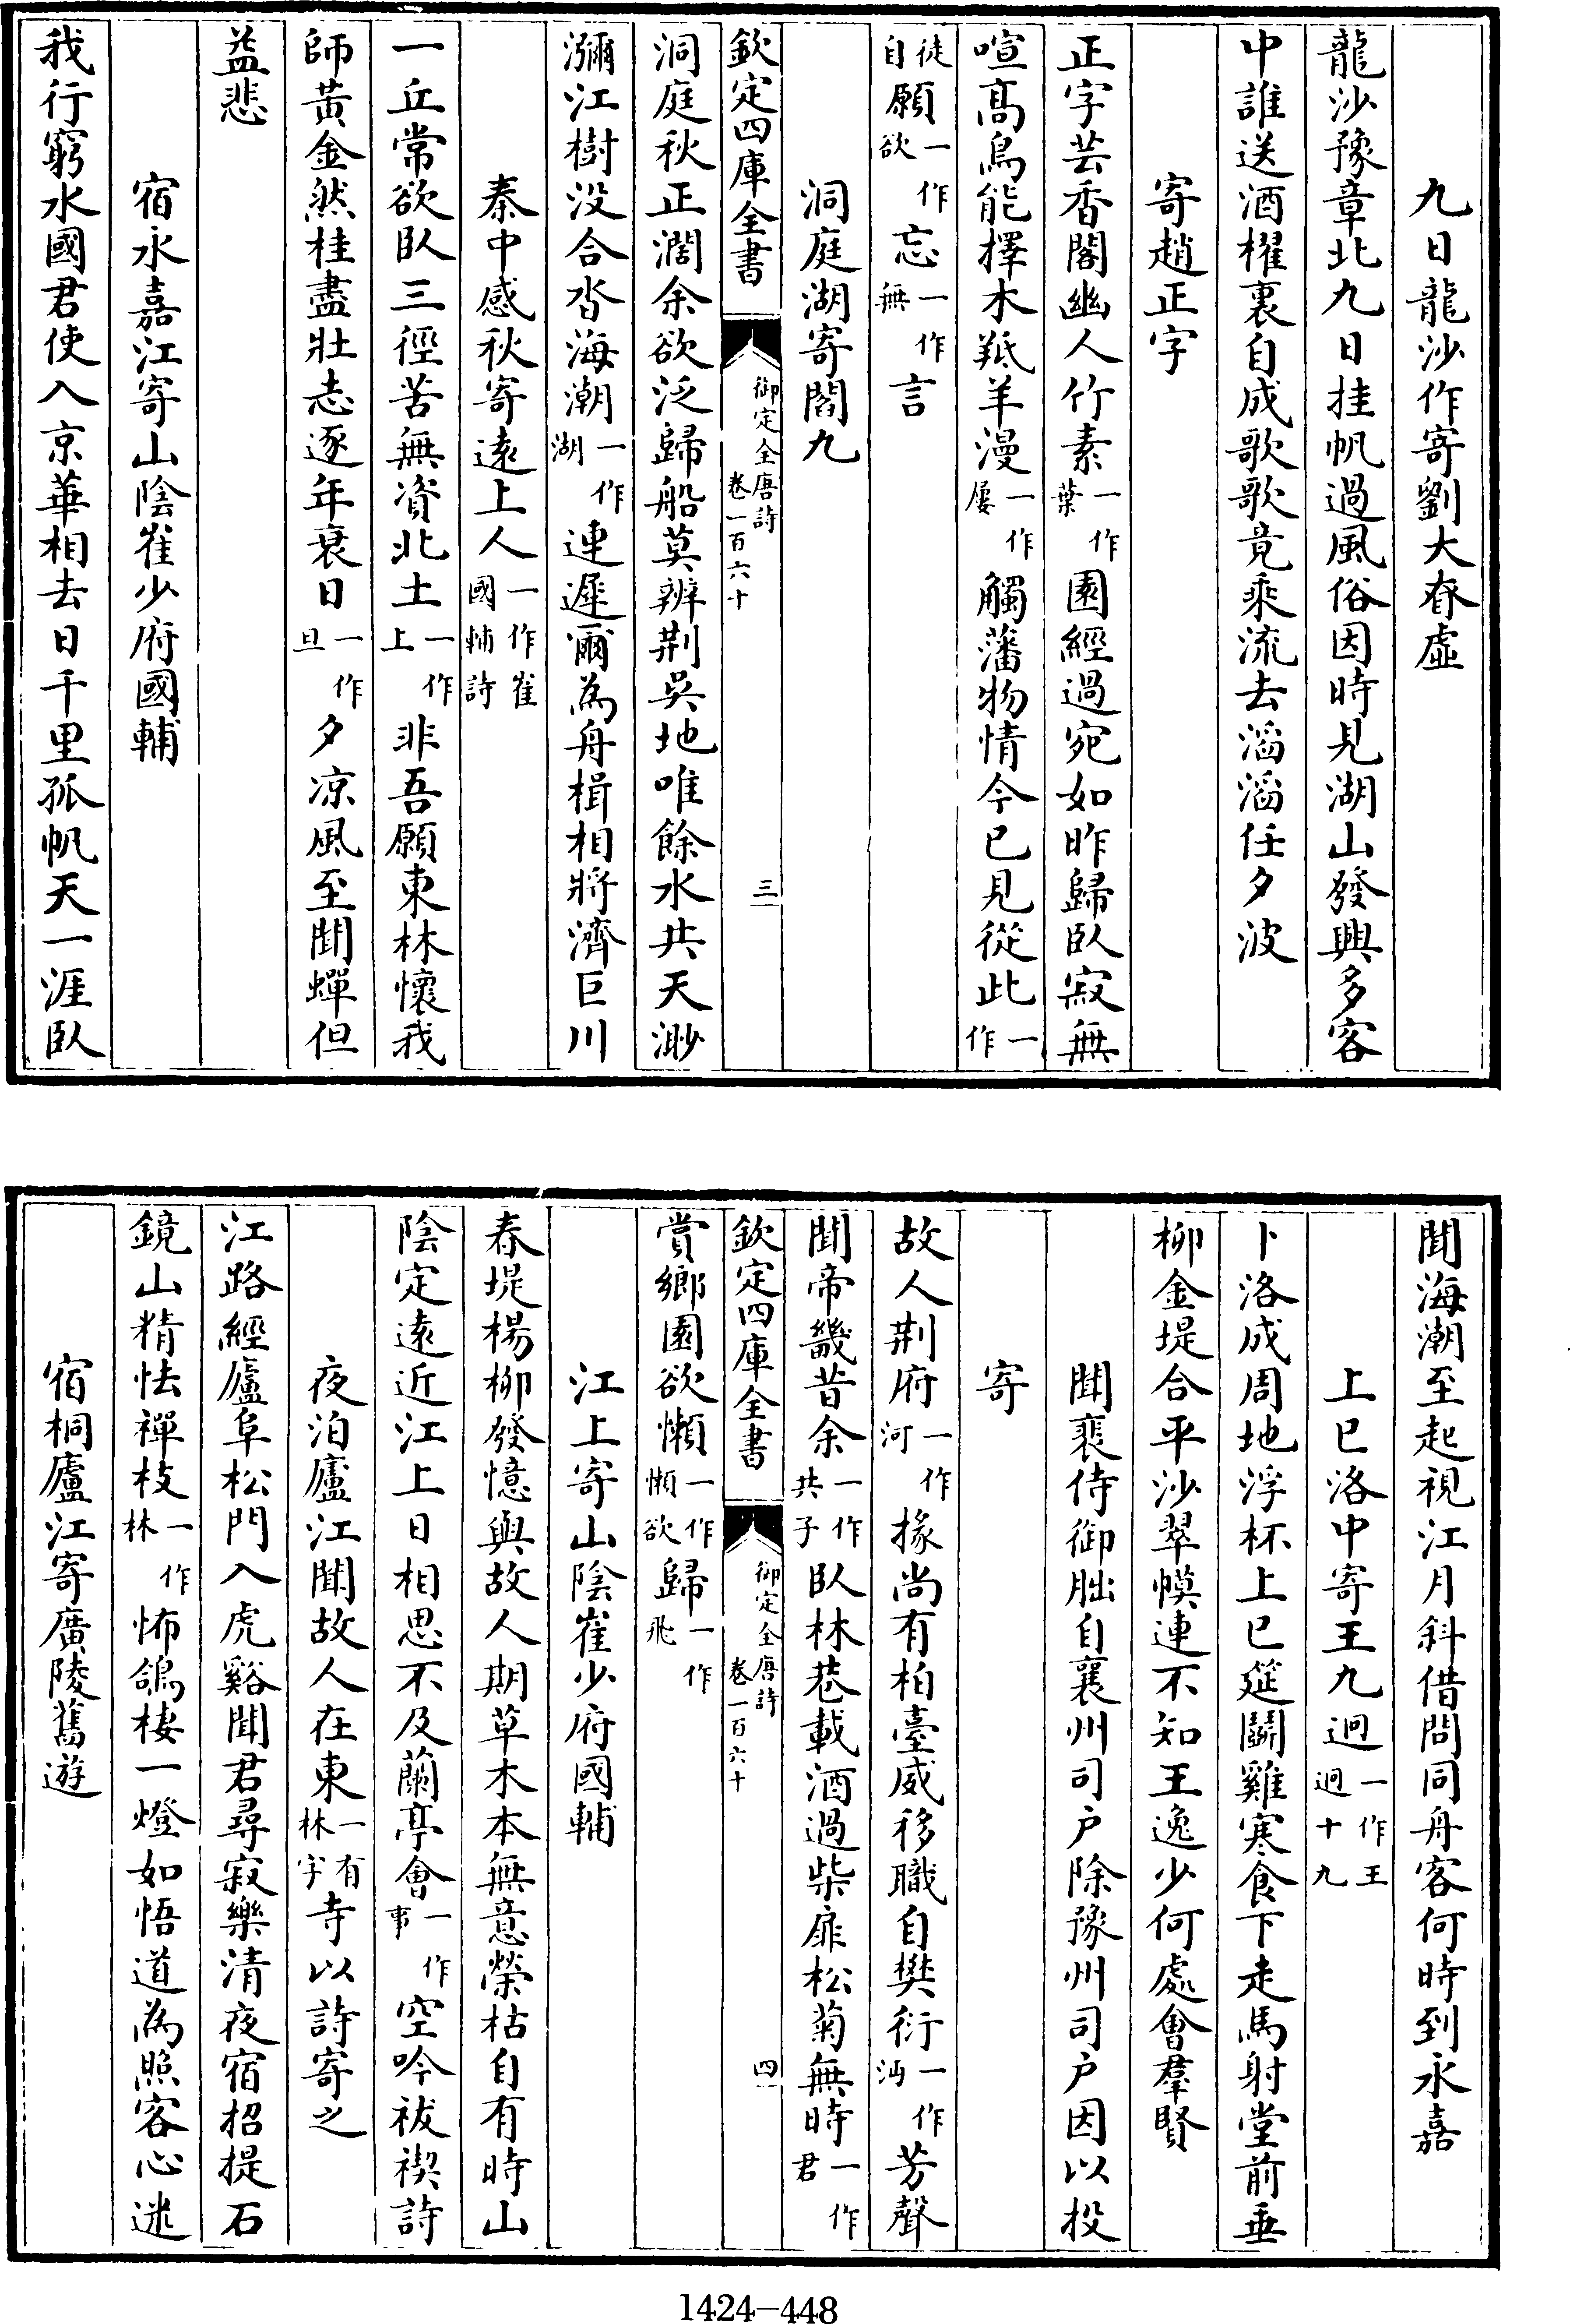 九日龍沙作寄劉大昚虛
龍沙豫章北九日挂帆過風俗因時見湖山發興多客
中誰送酒櫂裏自成歌歌竟乘流去滔滔任夕波
寄趙正字
正字芸香閣幽人竹素一作葉園經過宛如昨歸臥寂無
喧高鳥能擇木羝羊漫一作屢觸藩物情今已見從此一作
徒自願一作欲忘一作無言
洞庭湖寄閻九
欽定四庫全書
御定全唐詩卷一百六十
三
洞庭秋正濶余欲泛歸船莫辨荆吳地唯餘水共天渺
瀰江樹没合沓海潮一作湖連遲爾為舟楫相將濟巨川
秦中感秋寄遠上人一作崔國輔詩
一丘常欲臥三徑苦無資北土一作上非吾願東林懷我
師黃金然桂盡壯志逐年衰日一作旦夕凉風至聞蟬但
益悲
宿永嘉江寄山陰崔少府國輔
我行窮水國君使入京華相去日千里孤帆天一涯臥
聞海潮至起視江月斜借問同舟客何時到永嘉
上巳洛中寄王九迥一作王迥十九
卜洛成周地浮杯上巳筵鬭雞寒食下走馬射堂前垂
柳金堤合平沙翠幙連不知王逸少何處會羣賢
聞裴侍御朏自襄州司户除豫州司户因以投
寄
故人荆府一作河掾尚有柏臺威移職自樊衍一作沔芳聲
聞帝畿昔余一作共子臥林巷載酒過柴扉松菊無時一作君
欽定四庫全書
御定全唐詩卷一百六十
四
賞鄉園欲懶一作懶欲歸一作飛
江上寄山陰崔少府國輔
春堤楊柳發憶與故人期草木本無意榮枯自有時山
陰定遠近江上日相思不及蘭亭會一作事空吟祓禊詩
夜泊廬江聞故人在東一有林字寺以詩寄之
江路經廬阜松門入虎谿聞君尋寂樂清夜宿招提石
鏡山精怯禪枝一作林怖鴿棲一燈如悟道為照客心迷
宿桐廬江寄廣陵舊遊
1424-448